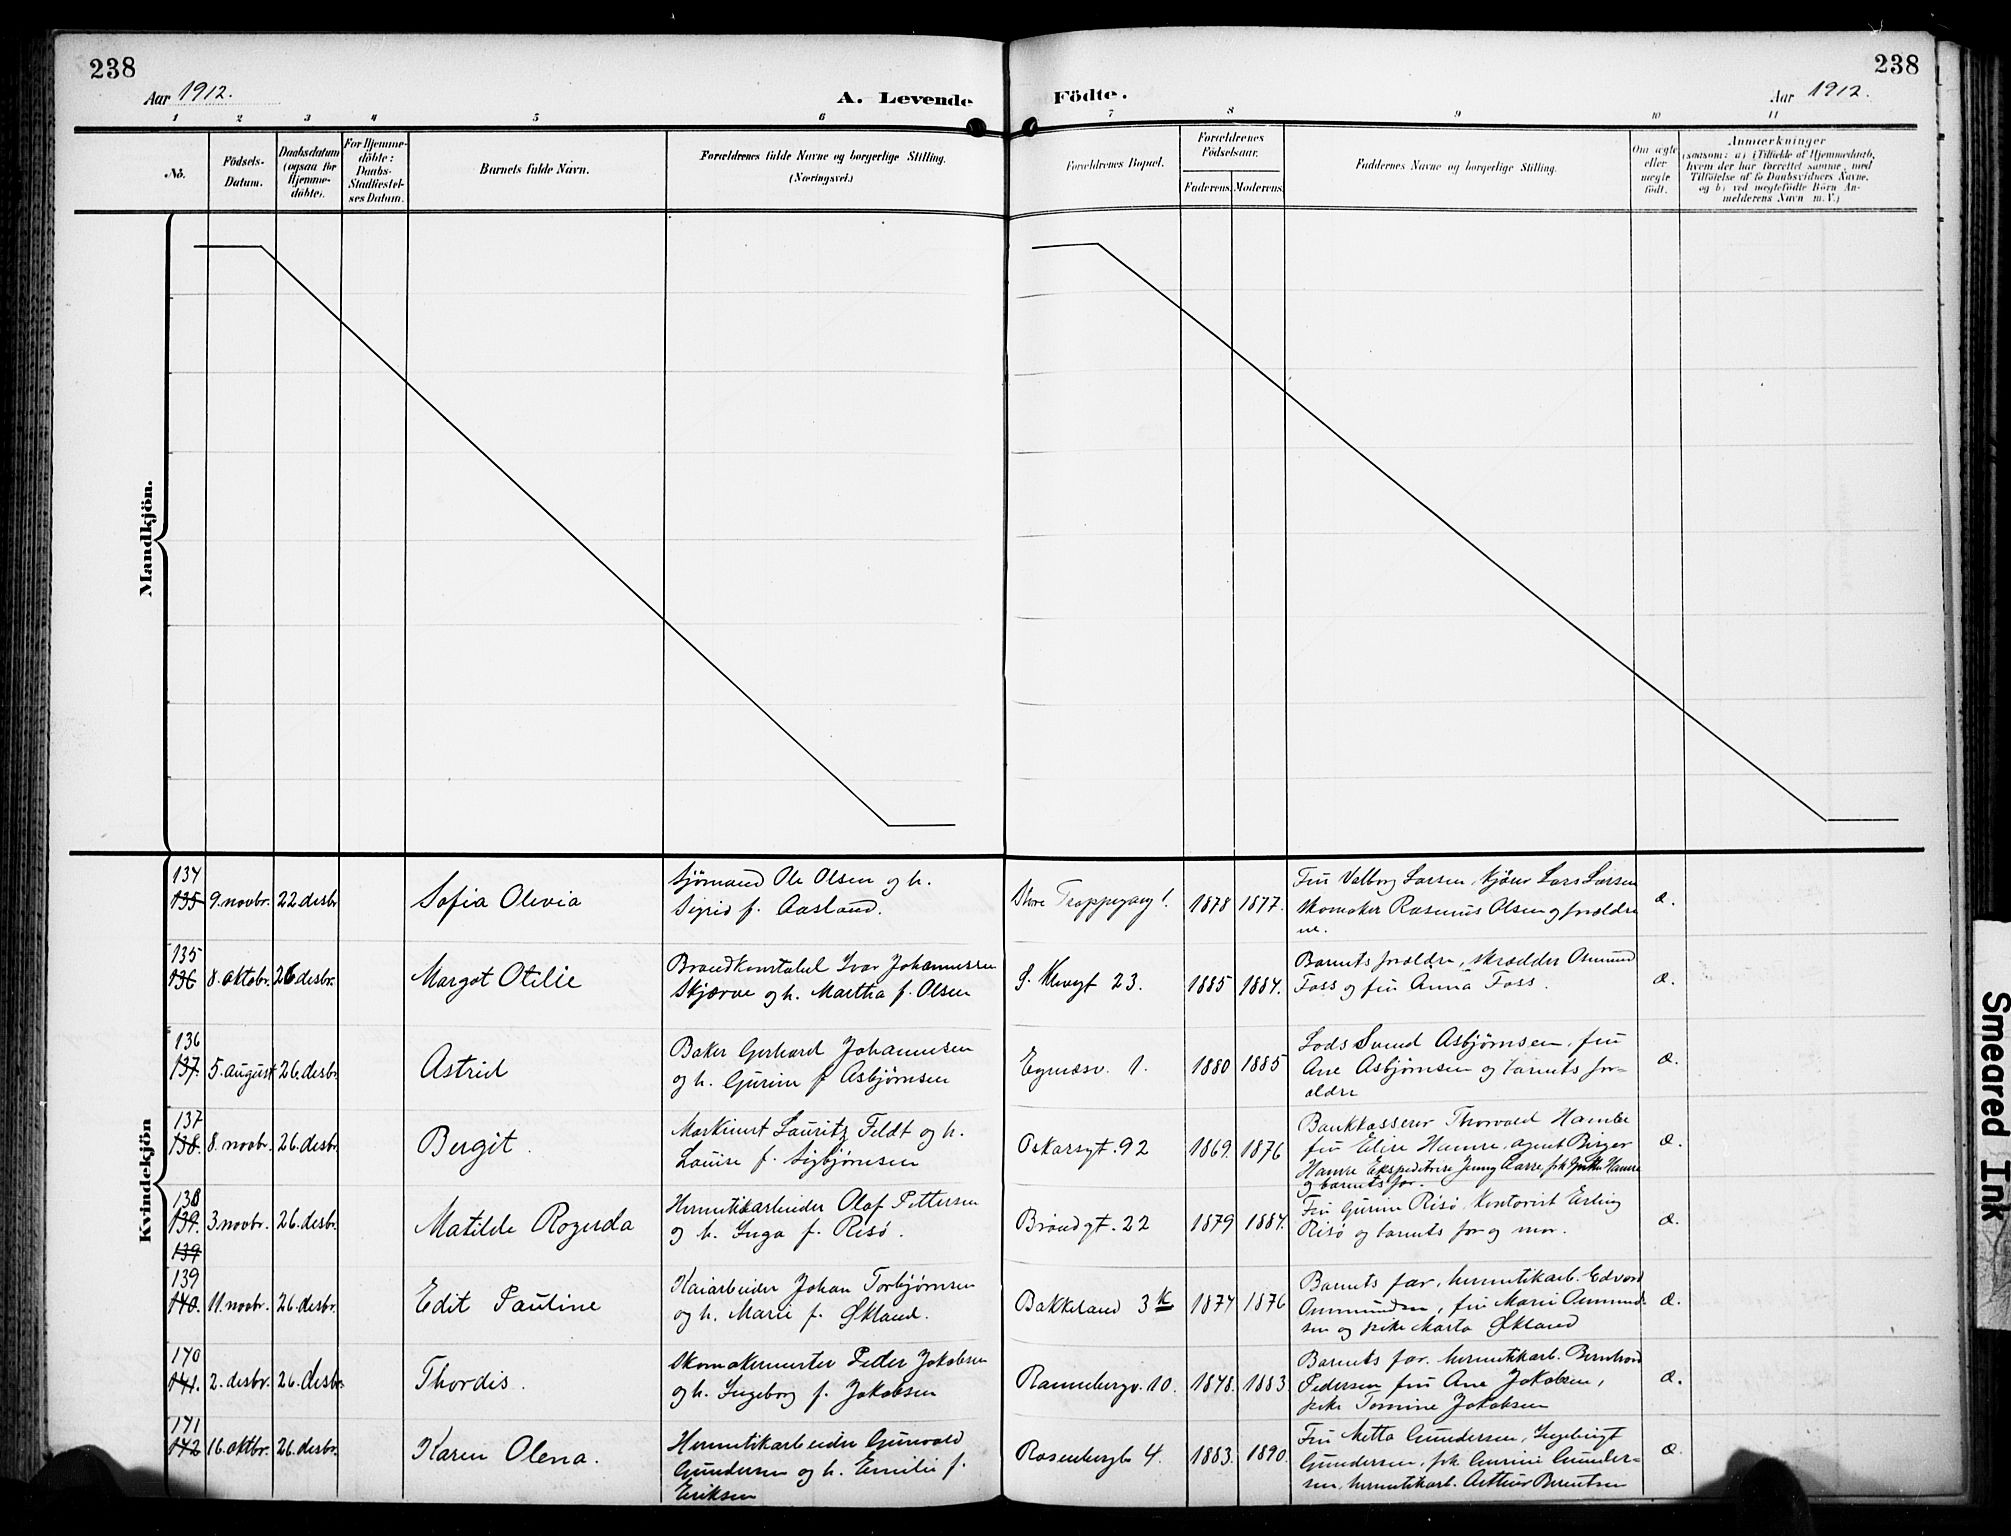 238
Aar 1912.
A. Levende
Födte.
238
Aar 1912.
1 2 3 4 5 6 7 8 9 10 11
No.
Födsels-
Datum.
Daabsdatum
(ogsaa for
Hjemme-
döbte).
For Hjemme-
döbte:
Daabs-
Stadfæstel-
ses Datum.
Barnets fulde Navn.
Forældrenes fulde Navne og borgerlige Stilling.
(Næringsvei.)
Forældrenes Bopæl.
Forældrenes
Födselsaar.
Faderens.
Moderens.
Faddernes Navne og borgerlige Stilling.
Om ægte
eller
uægte
födt.
Anmærkninger
(saasom: a) i Tilfælde af Hjemmedaab,
hvem der har forrettet samme, med
Tilföielse af to Daabsvidners Navne.
og b) ved uægtefödte Börn An-
melderens Navn m. V.)
Mandkjön.
Kvindekjön
134
135 9. novbr. 22 desbr.
Sofia Olivia
Sjømand Ole Olsen og h.
Sigrid f. Aasland.
Store Trappegang 1.
1878 1877.
Fru Valborg Larsen, Lars Larsen
skomaker Rasmus Olsen og forældre
ne.
æ.
135
136 8. oktobr. 26 desbr.
Margot Otilie
Brandkonstabel Ivar Johannessen
Skjærve og h. Martha f. Olsen
23.
1885 1884.
Barnets forældre, skrædder Osmund
Foss og fru Anna Foss.
æ.
136
137. 5. august 26. desbr.
Astrid
Baker Gerhard Johannesen
og h. Gurine f. Asbjørnsen
Egenæsv. 1.
1880 1885
Lods Svend Asbjørnsen, fru
Ane Asbjørnsen og barnets for-
ældre
æ.
137
138. 8. novbr. 26. desbr.
Bergit.
Maskinist Lauritz Feldt og h.
Louise f. Sigbjørnsen
Oskarsgt. 92
1869. 1876
Bankkasserer Thorvald Hamre
fru Elise Hamre, agent Birger
Hamre Ekspeditrise Jenny Aarre, frk Hamre
og barnets far.
æ.
138
139. 3. novbr. 26. desbr.
139
Matilde Rogerda
Hermetikarbeider Olaf Pettersen
og h. Inga f. Risø.
Brøndgt. 22
1879 1884.
Fru Gurine Risø, Kontorist Erling
Risø og barnets far og mor.
æ.
139
140. 11. novbr. 26. desbr.
Edit Pauline
Kaiarbeider Johan Torbjørnsen
og h. Marie f. Økland.
Bakkeland 3 K
1874 1876
Barnets far, hermetikarb. Edvard
Ommundsen, fru Marie Ommund-
sen og pike Marta Økland
æ.
140
141. 2. desbr. 26. desbr.
Thordis.
Skomakermester Peder Jakobsen
og h. Ingeborg f. Jakobsen
Rannebergv. 10.
1878. 1883
Barnets far. hermetikarb. Bernhard
Pedersen fru Ane Jakobsen,
pike Tomine Jakobsen
æ.
141
142 16. oktbr. 26. desbr.
Karen Olena.
Hermetikarbeider Gunvald
Gundersen og h. Emilie f.
Eriksen
Rosenberggt 4.
1883. 1890.
Fru Metta Gundersen, Ingebrigt
Gundersen, frk. Gurine Gunder-
sen, hermetikarb. Arthur Berentsen
æ.
Smeared Ink